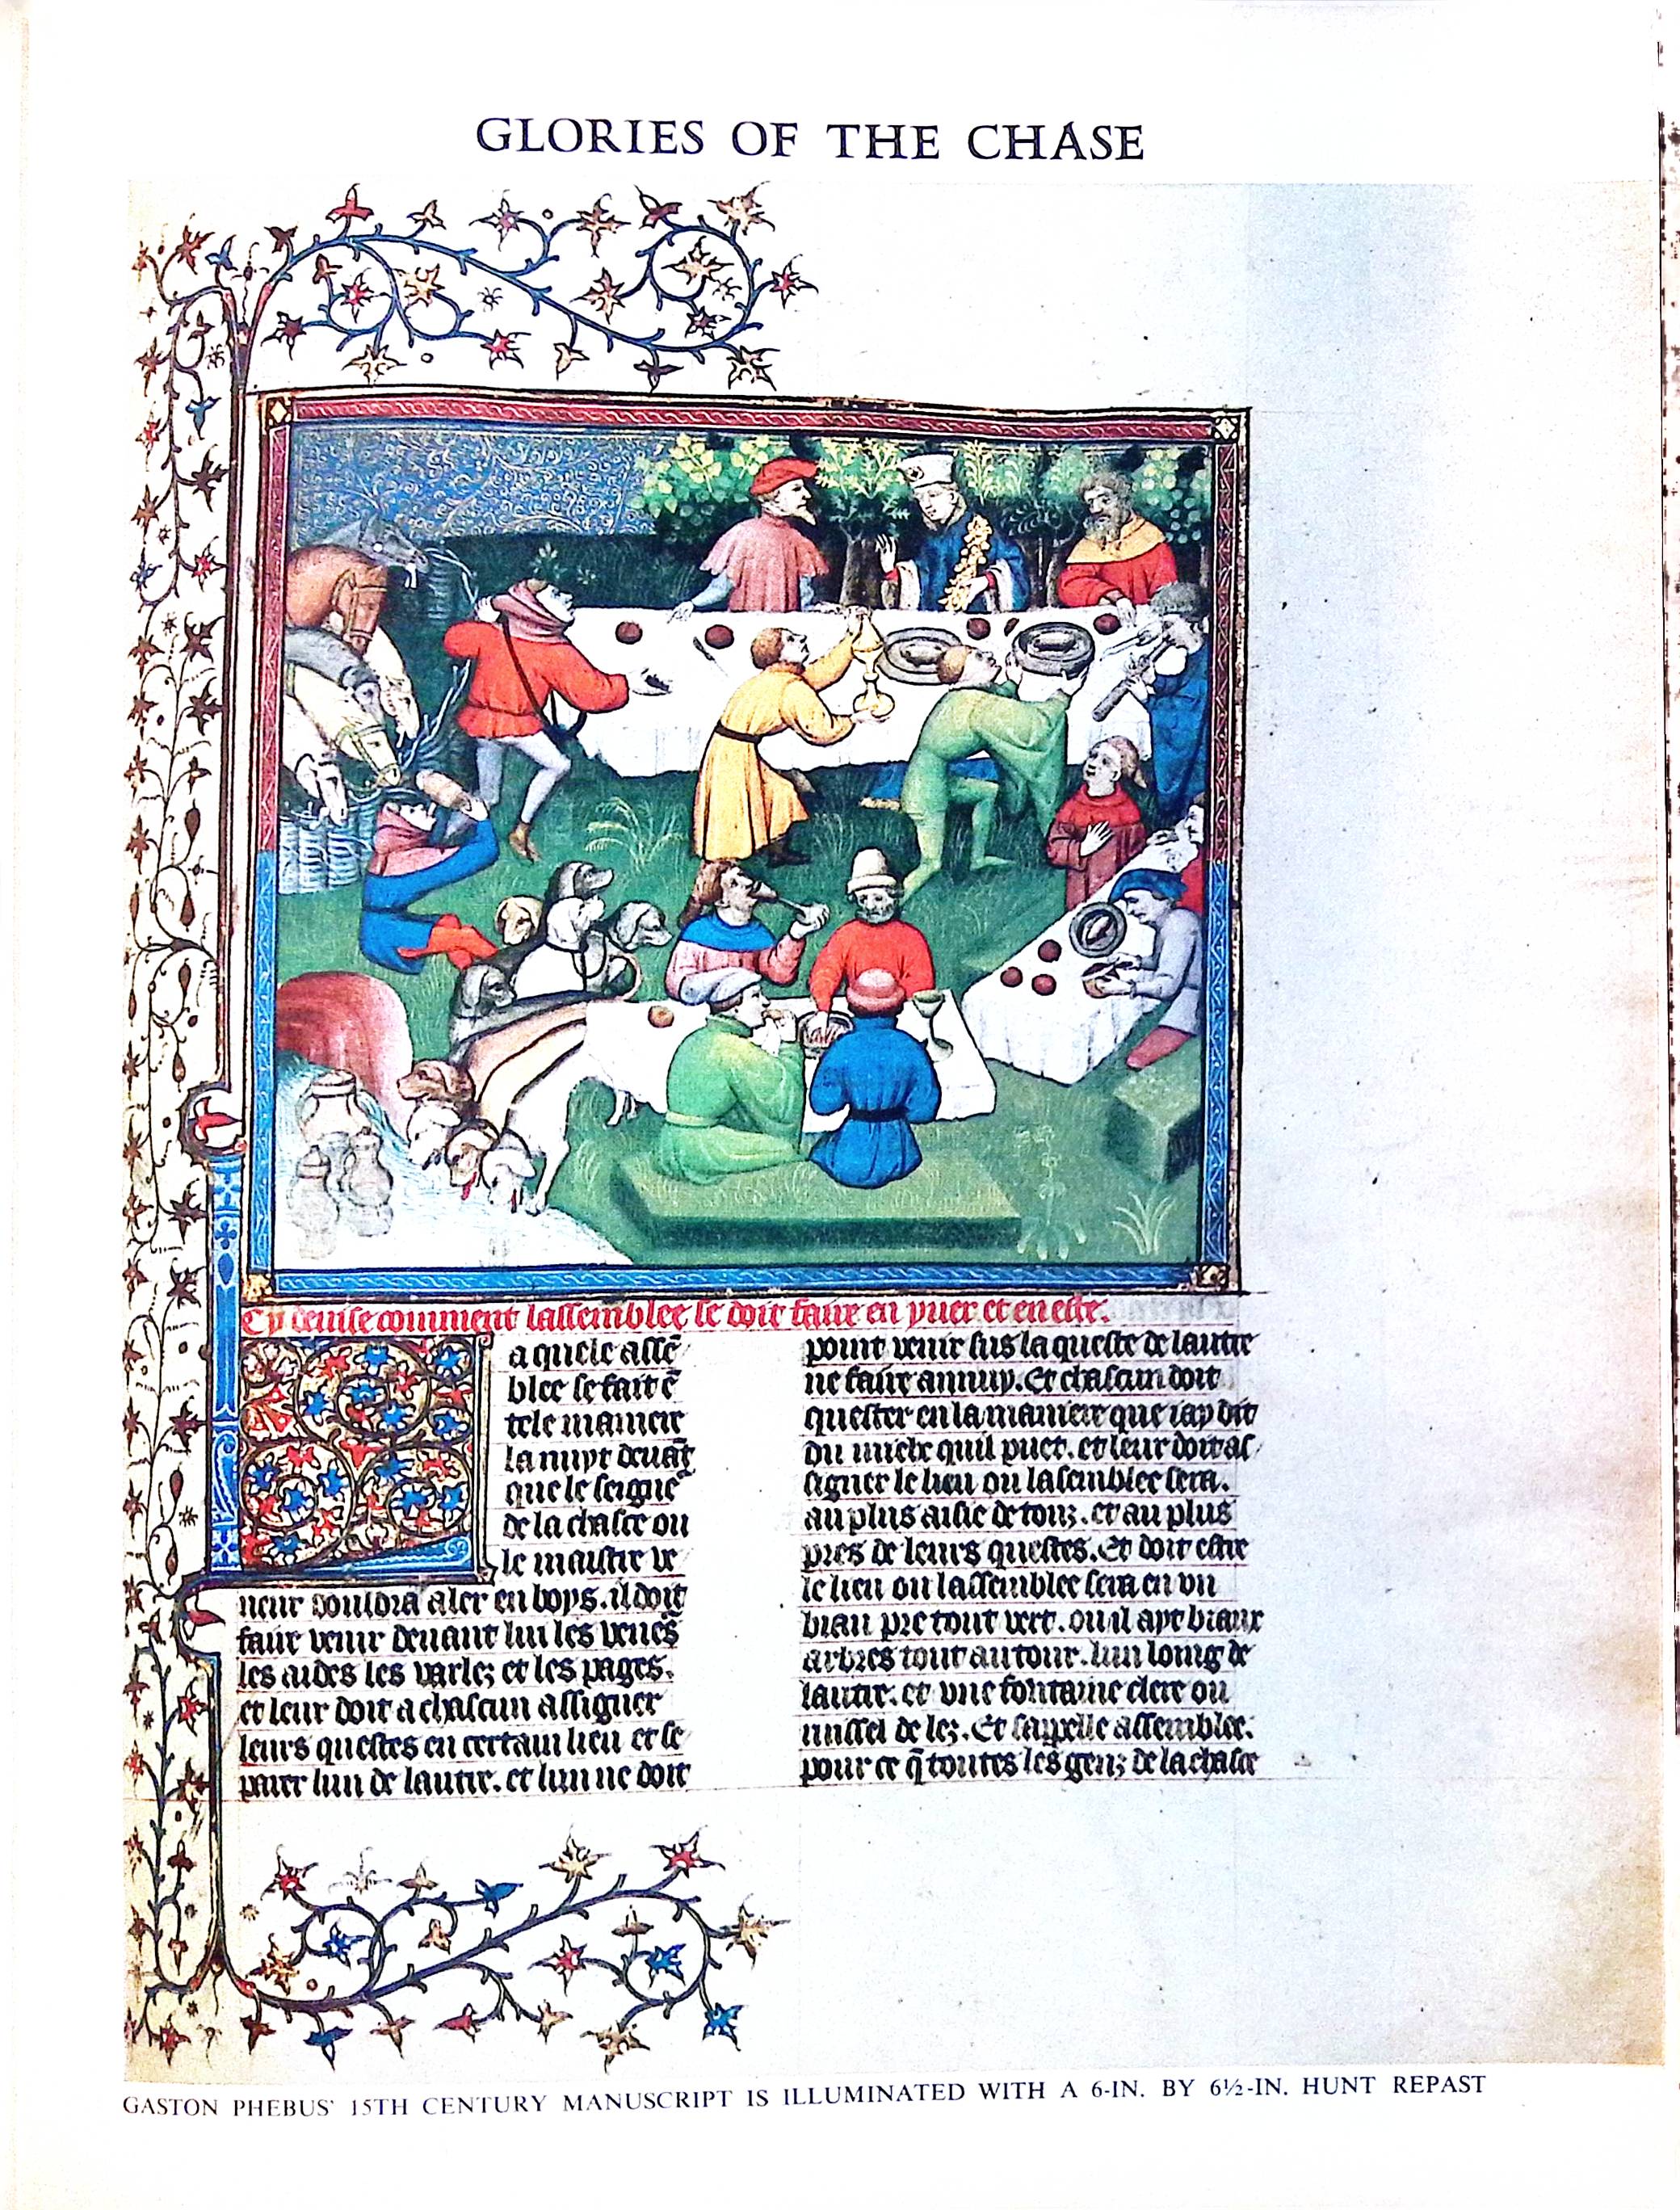 GLORIES OF THE CHASE
Cy deuise comment lassemblee se doit faire en yuer et en este.
a quele assē
blee se fait ē
tele maniere
la nuyt deuāt
que le seigne
de la chasce ou
le maistre ve
neur vouldra aler en boys. il doit
faire venir deuant lui les venes
les aides les varlez et les pages.
et leur doit a chascun assigner
leurs questes en certain lieu et se
parer lun de lautre. et lun ne doit
point venir sus la queste de lautre
ne faire annuy. Et chascun doit
quester en la maniere que iay dit
du mielx quil puet. et leur doit as
signer le lieu ou lasemblee sera.
au plus aisie de touz. et au plus
pres de leurs questes. Et doit estre
le lieu ou lassemblee sera en vn
biau pre tout vert. ou il ayt biaux
arbres tout autour. lun loing de
lautre. et vne fontaine clere ou
russel de lez. Et sappelle assemblee.
pour ce q̄ toutes les genz de la chasce
GASTON PHEBUS' 15TH CENTURY MANUSCRIPT IS ILLUMINATED WITH A 6-IN. BY 6½-IN. HUNT REPAST